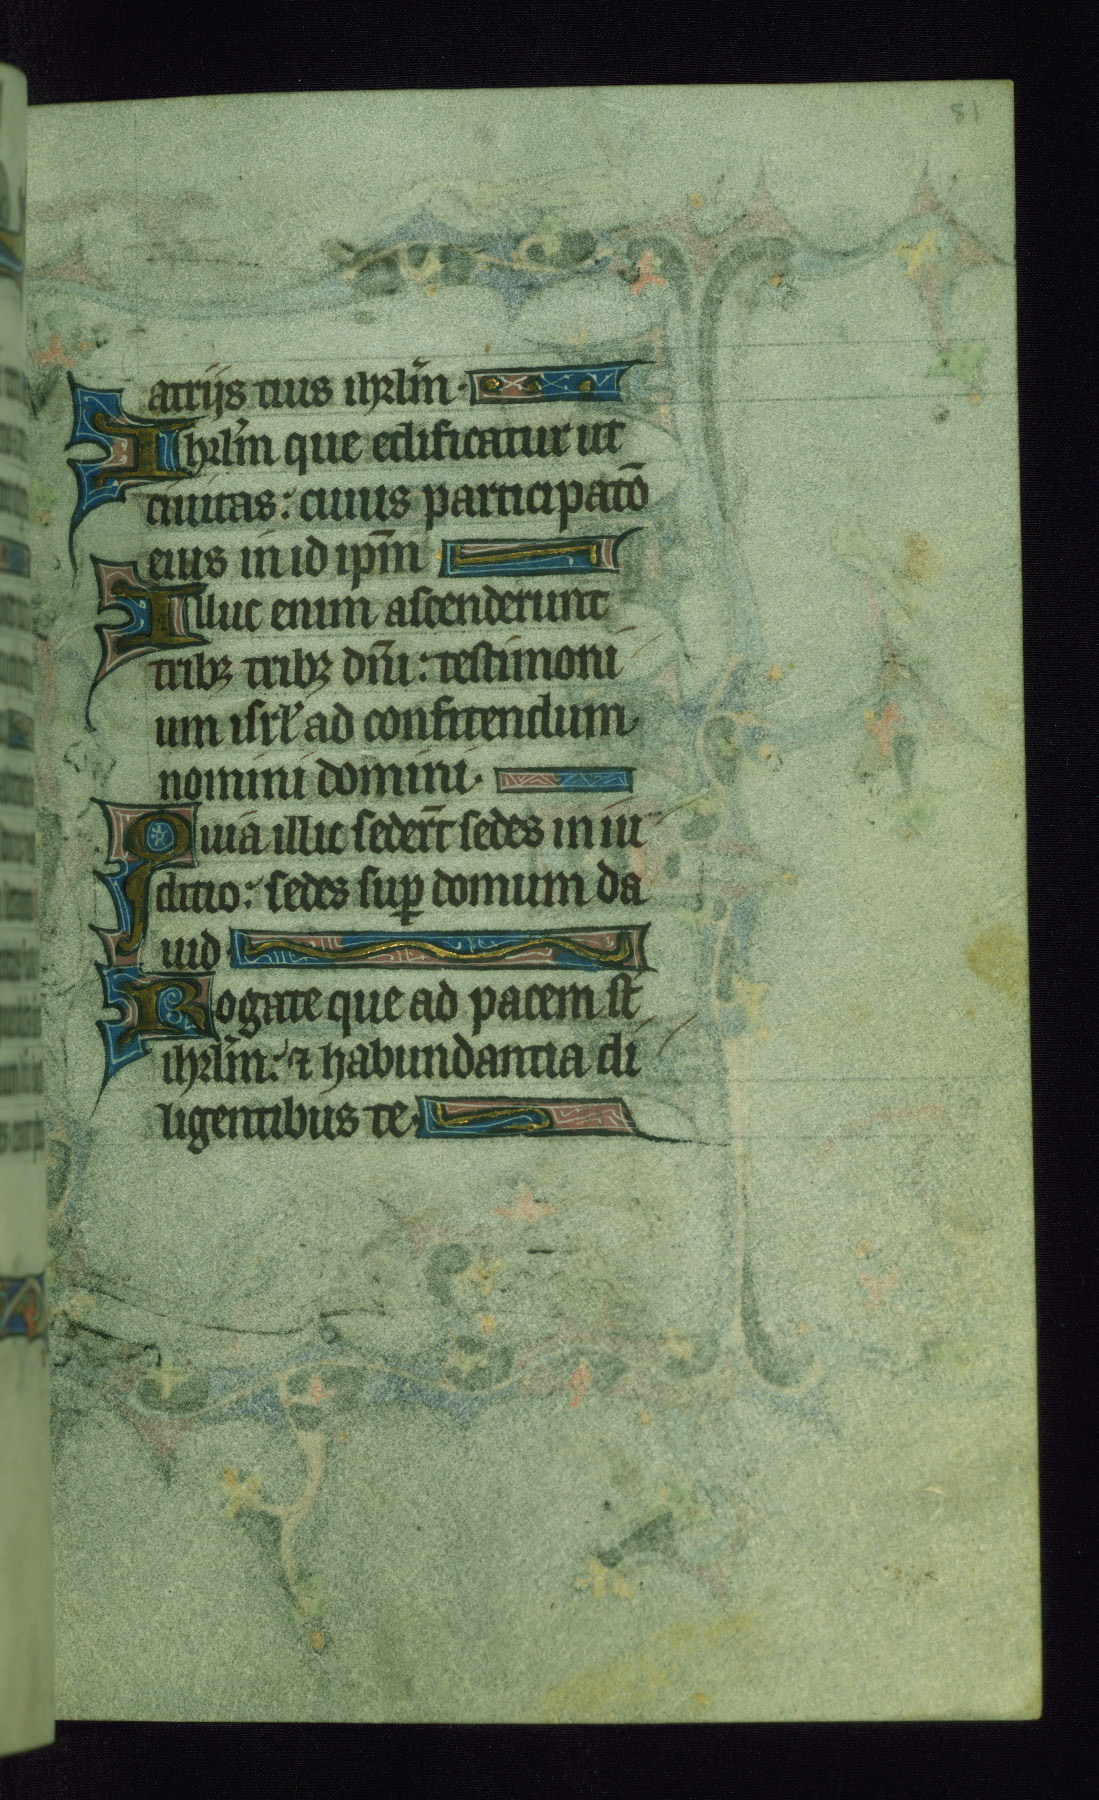 81
atrijs tuis ihrlm̄.
Ihrlm̄ que edificatur ut
ciuitas: cuius participatō
eius in id ip̄m
Illuc enim ascenderunt
tribꝫ tribꝫ dn̄i: testimoni
um isrl̄ ad confitendum
nomini domini.
Quia illic seder̄t sedes in iu
dicio: sedes suꝑ domum da
uid
Rogate que ad pacem st̄
ihrlm̄: ⁊ habundantia di
ligentibus te.